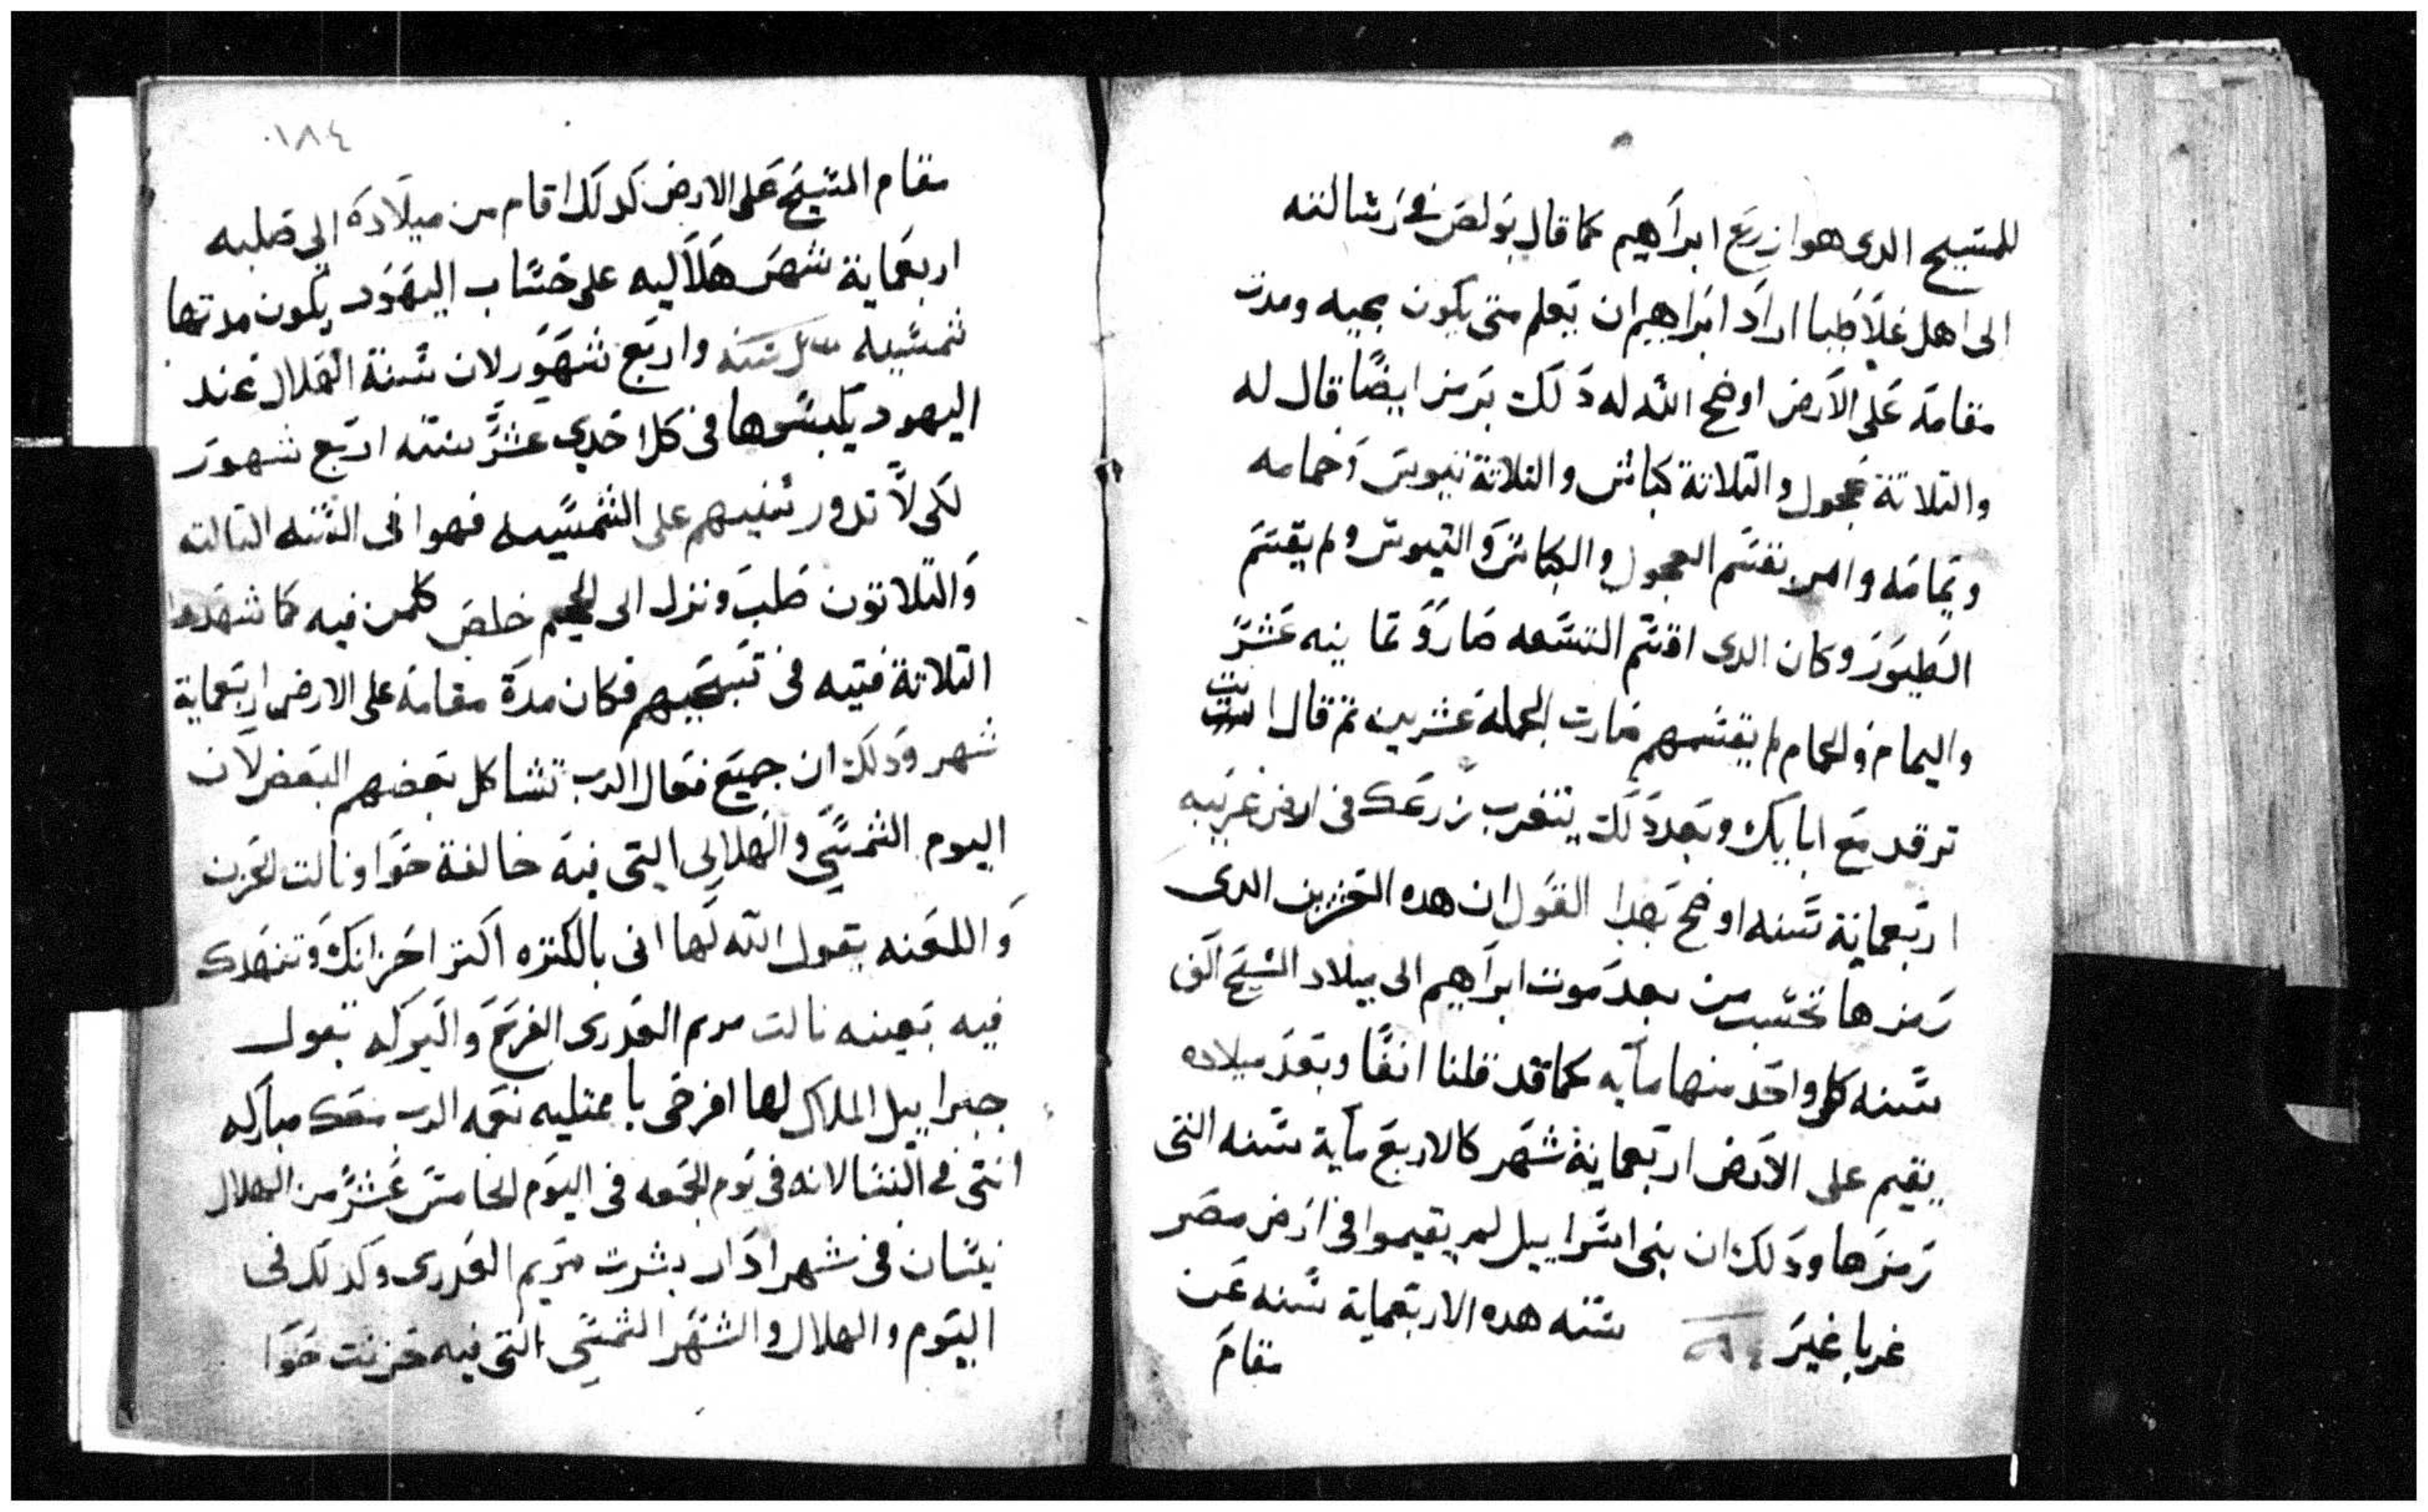 للمسيح الدى هوا زرع ابراهيم كما قال بولص فى رسالته
الى اهل غلاطيا اراد ابراهيم ان يعلم متى يكون مجيه ومدت
مقامه على الارض اوضح الله له دلك برمز ايضًا قال له
والتلاتة عجول والتلاتة كباش والتلاتة تيوس وحمامه
ويمامه وامره تقسم العجول والكباش والتيوس ولم يقسم
الطيور وكان الدى اقسم التسعه صارو تمانيه عشر
واليمام والحمام لم يقسمهم صارت الجمله عشرين تم قال انت
ترقد مع ابايك وبعد دلك يتغرب زرعك فى ارض غريبه
اربعماية سنه اوضح بهدا القول ان هده التعزين الدى
رمزها تحسب من بعد موت ابراهيم الى ميلاد المسيح الفى
سنه كل واحد منها مايه كما قد قلنا انفًا وبعد ميلاده
يقيم على الارض اربعماية شهر كالاربع ماية سنه التى
رمزها ودلك ان بنى اسراييل لم يقيموا فى ارض مصر
غربا غير سنه هده الاربعماية سنه عن
مقام
١٨٤
مقام المسيح على الارض كدلك اقام من ميلاده الى صلبه
اربعماية شهر هلاليه على حساب اليهود يكون مدتها
شمسيه سنه واربع شهور لان سنة الهلال عند
اليهود يكبسوها فى كل احدى عشر سنه اربع شهور
لكى لا تدور سنيهم على الشمسيه فهوا فى السنه التالته
والتلاتون صلب ونزل الى الجحيم خلص كلمن فيه كما شهدوا
التلاتة فتيه فى تسبحيهم فكان مدة مقامه على الارض اربعماية
شهر ودلك ان جميع فعال الرب تشاكل بعضهم البعض لان
اليوم الشمسي والهلالى التى فيه خالفة حوا ونالت الحزن
واللعنه بقول الله لها انى بالكتره اكتر احزانك وتنهدك
فيه بعينه نالت مريم العدرى الفرح والبركه بقول
جبراييل الملاك لها افرحى يا ممتليه نعمه الرب معك مباركه
انتى فى النسا لانه فى يوم الجمعه فى اليوم الخامس عشر من الهلال
نيسان فى شهر ادار بشرت مريم العدرى وكدلك فى
اليوم والهلال والشهر الشمسي التى فيه حزنت حوا